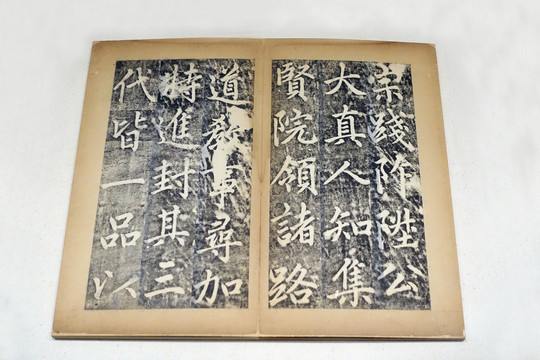 宗踐阼陞公
大真人知集
賢院領諸路
道教事尋加
特進封其三
代皆一品以